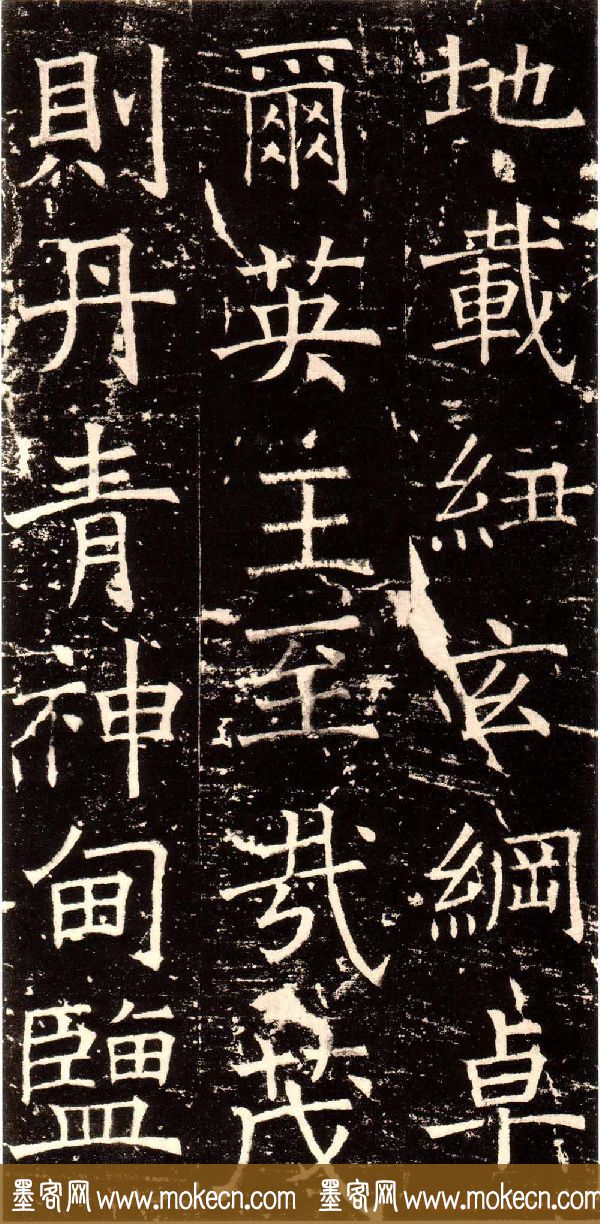 地載紐玄綱卓
爾英王至哉茂
則丹青神甸鹽
墨客网 www.mokecn.com 墨客网 www.mokecn.com